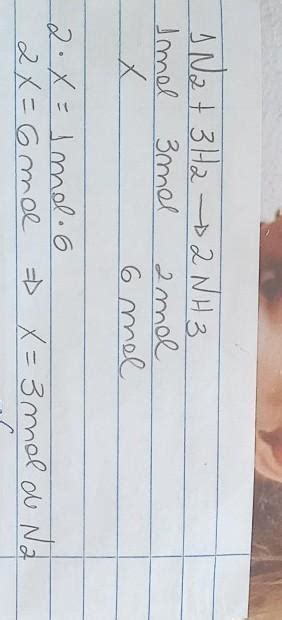 1N2 + 3H2 → 2NH3
1mol 3mol 2mol
X 6mol
2·X = 1mol·6
2X = 6mol ⇒ X = 3mol de N2